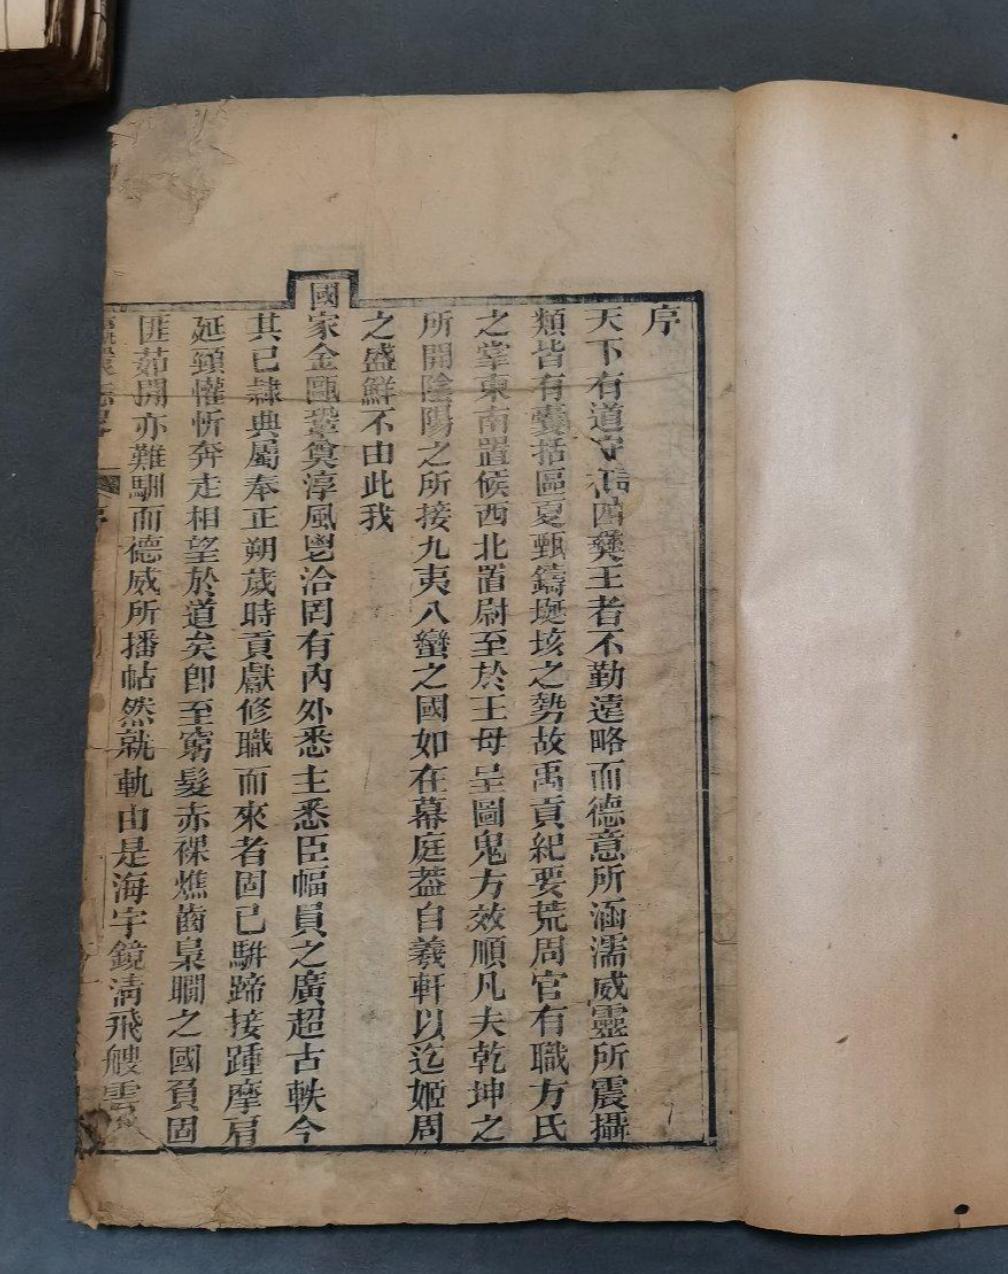 序
天下有道守在四彝王者不勤遠略而德意所涵濡威靈所震攝
類皆有囊括區夏甄鑄埏垓之勢故禹貢紀要荒周官有職方氏
之掌東南置候西北置尉至於王母呈圖鬼方效順凡夫乾坤之
所開陰陽之所接九夷八蠻之國如在幕庭葢自羲軒以迄姬周
之盛鮮不由此我
國家金甌鞏奠淳風鬯洽罔有內外悉主悉臣幅員之廣超古軼今
其已隷典屬奉正朔歲時貢獻修職而來者固已駢蹄接踵摩肩
延頸懽忻奔走相望於道矣卽至窮髮赤裸燋齒梟瞯之國負固
匪茹開亦難馴而德威所播帖然就軌由是海宇鏡淸飛艘雲
序